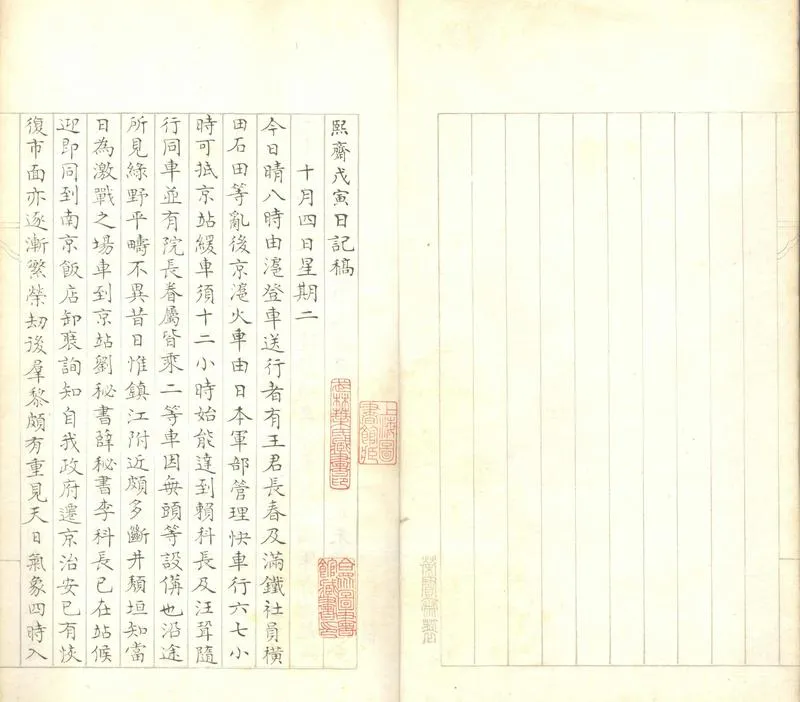 熙齋戊寅日記稿
十月四日星期二
今日晴八時由滬登車送行者有王君長春及滿鐵社員橫
田石田等亂後京滬火車由日本軍部管理快車行六七小
時可抵京站緩車須十二小時始能達到賴科長及汪聳隨
行同車並有院長眷屬皆乘二等車因無頭等設備也沿途
所見綠野平疇不異昔日惟鎮江附近頗多斷井頹垣知當
日為激戰之場車到京站劉秘書薛秘書李科長已在站候
迎即同到南京飯店卸裝詢知自我政府遷京治安已有恢
復市面亦逐漸繁榮劫後羣黎頗有重見天日氣象四時入
武林葉氏藏書印
上海圖書館藏
合眾圖書館藏書印